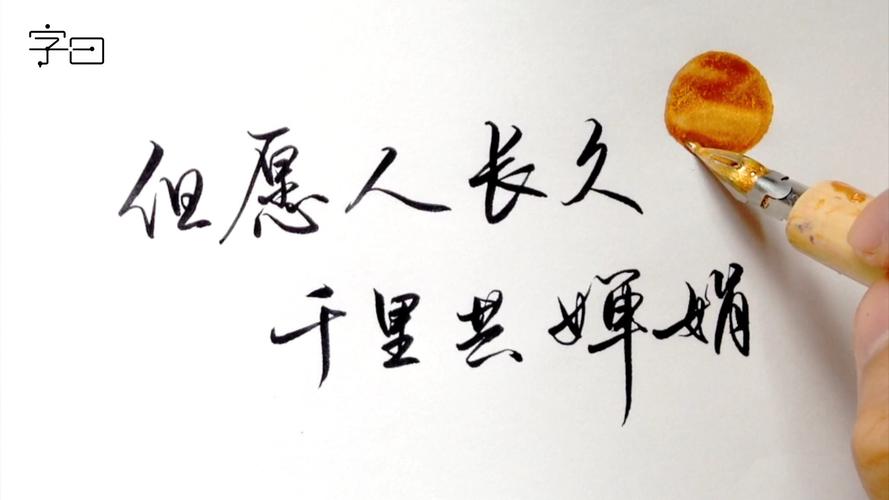 字曰
但愿人长久
千里共婵娟